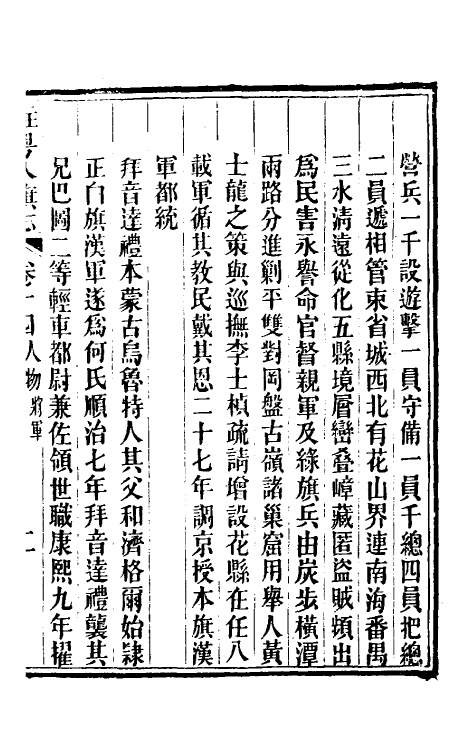 營兵一千設遊擊一員守備一員千總四員把總
二員遞相管束省城西北有花山界連南海番禺
三水淸遠從化五縣境層巒疊嶂藏匿盜賊頻出
爲民害永譽命官督親軍及綠旗兵由炭步橫潭
兩路分進剿平雙對岡盤古嶺諸巢窟用舉人黃
士龍之策與巡撫李士楨疏請增設花縣在任八
載軍循其教民戴其恩二十七年調京授本旗漢
軍都統
拜音達禮本蒙古烏魯特人其父和濟格爾始隸
正白旗漢軍遂爲何氏順治七年拜音達禮襲其
兄巴圖二等輕車都尉兼佐領世職康熙九年擢
八旗志 卷十四人物 將軍 二